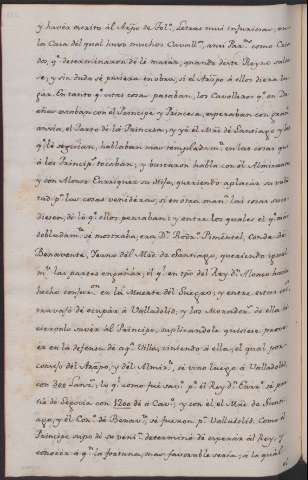 y havia escrito al Arzpo de Tol.o Letras mui injuriosas, en
la Casa del qual huvo muchos Cavall.os, assi Par.tes como Cria-
dos, q.e determinaron de le matar, quando deste Reyno salie-
se, y sin duda se pusiera en obra, si el Arzpo a ellos diera lu-
gar. En tanto q.e estas cosas pasaban, los Cavalleros q.e en Du-
eñas estaban con el Principe y Princesa, esperaban con gran
ansia, el Parto de la Princesa, y ya el Mtre de Santiago y los
q.e le seguian, hablaban mas templadam.te en las cosas que
a los Principes tocaban; y buscaron habla con el Almirante
y con Alonso Enrriquez su Hijo, queriendo aplacar su volun-
tad p.a las cosas venideras, si en otra man.a las cosas suce-
diesen, de lo q.e ellos pensaban: y entre los quales el q.e mas
dobladam.te se mostraba, era D.n Rodr.o Pimentel, Conde de
Benavente, Yerno del Mtre de Santiago, queriendo igual-
m.te las partes engañar, el q.e en tpo del Rey D.n Alonso havia
hecho en la Muerte del Suegro; y entre estas co-
travajó de ocupar a Valladolid; y los Moradores de ella hi-
cieronlo saver al Principe, suplicandole quisiese prove-
er en la defensa de aq.lla Villa, viniendo a ella; el qual por
consejo del Arzpo, y del Almir.te, se vino luego a Valladolid,
con 300 Lanz.s, lo q.e como fue savi.o p.r el Rey D.n Enrr.e se par-
tio de Segovia con 1200 de a Cav.o, y con él el Mtre de Santi-
ago, y el Con.e de Benav.te, se fueron p.a Valladolid. Como el
Principe supo de su veni.a determinó de esperar al Rey, y
conocer a q.l la fortuna, mas favorable seria; a lo qual